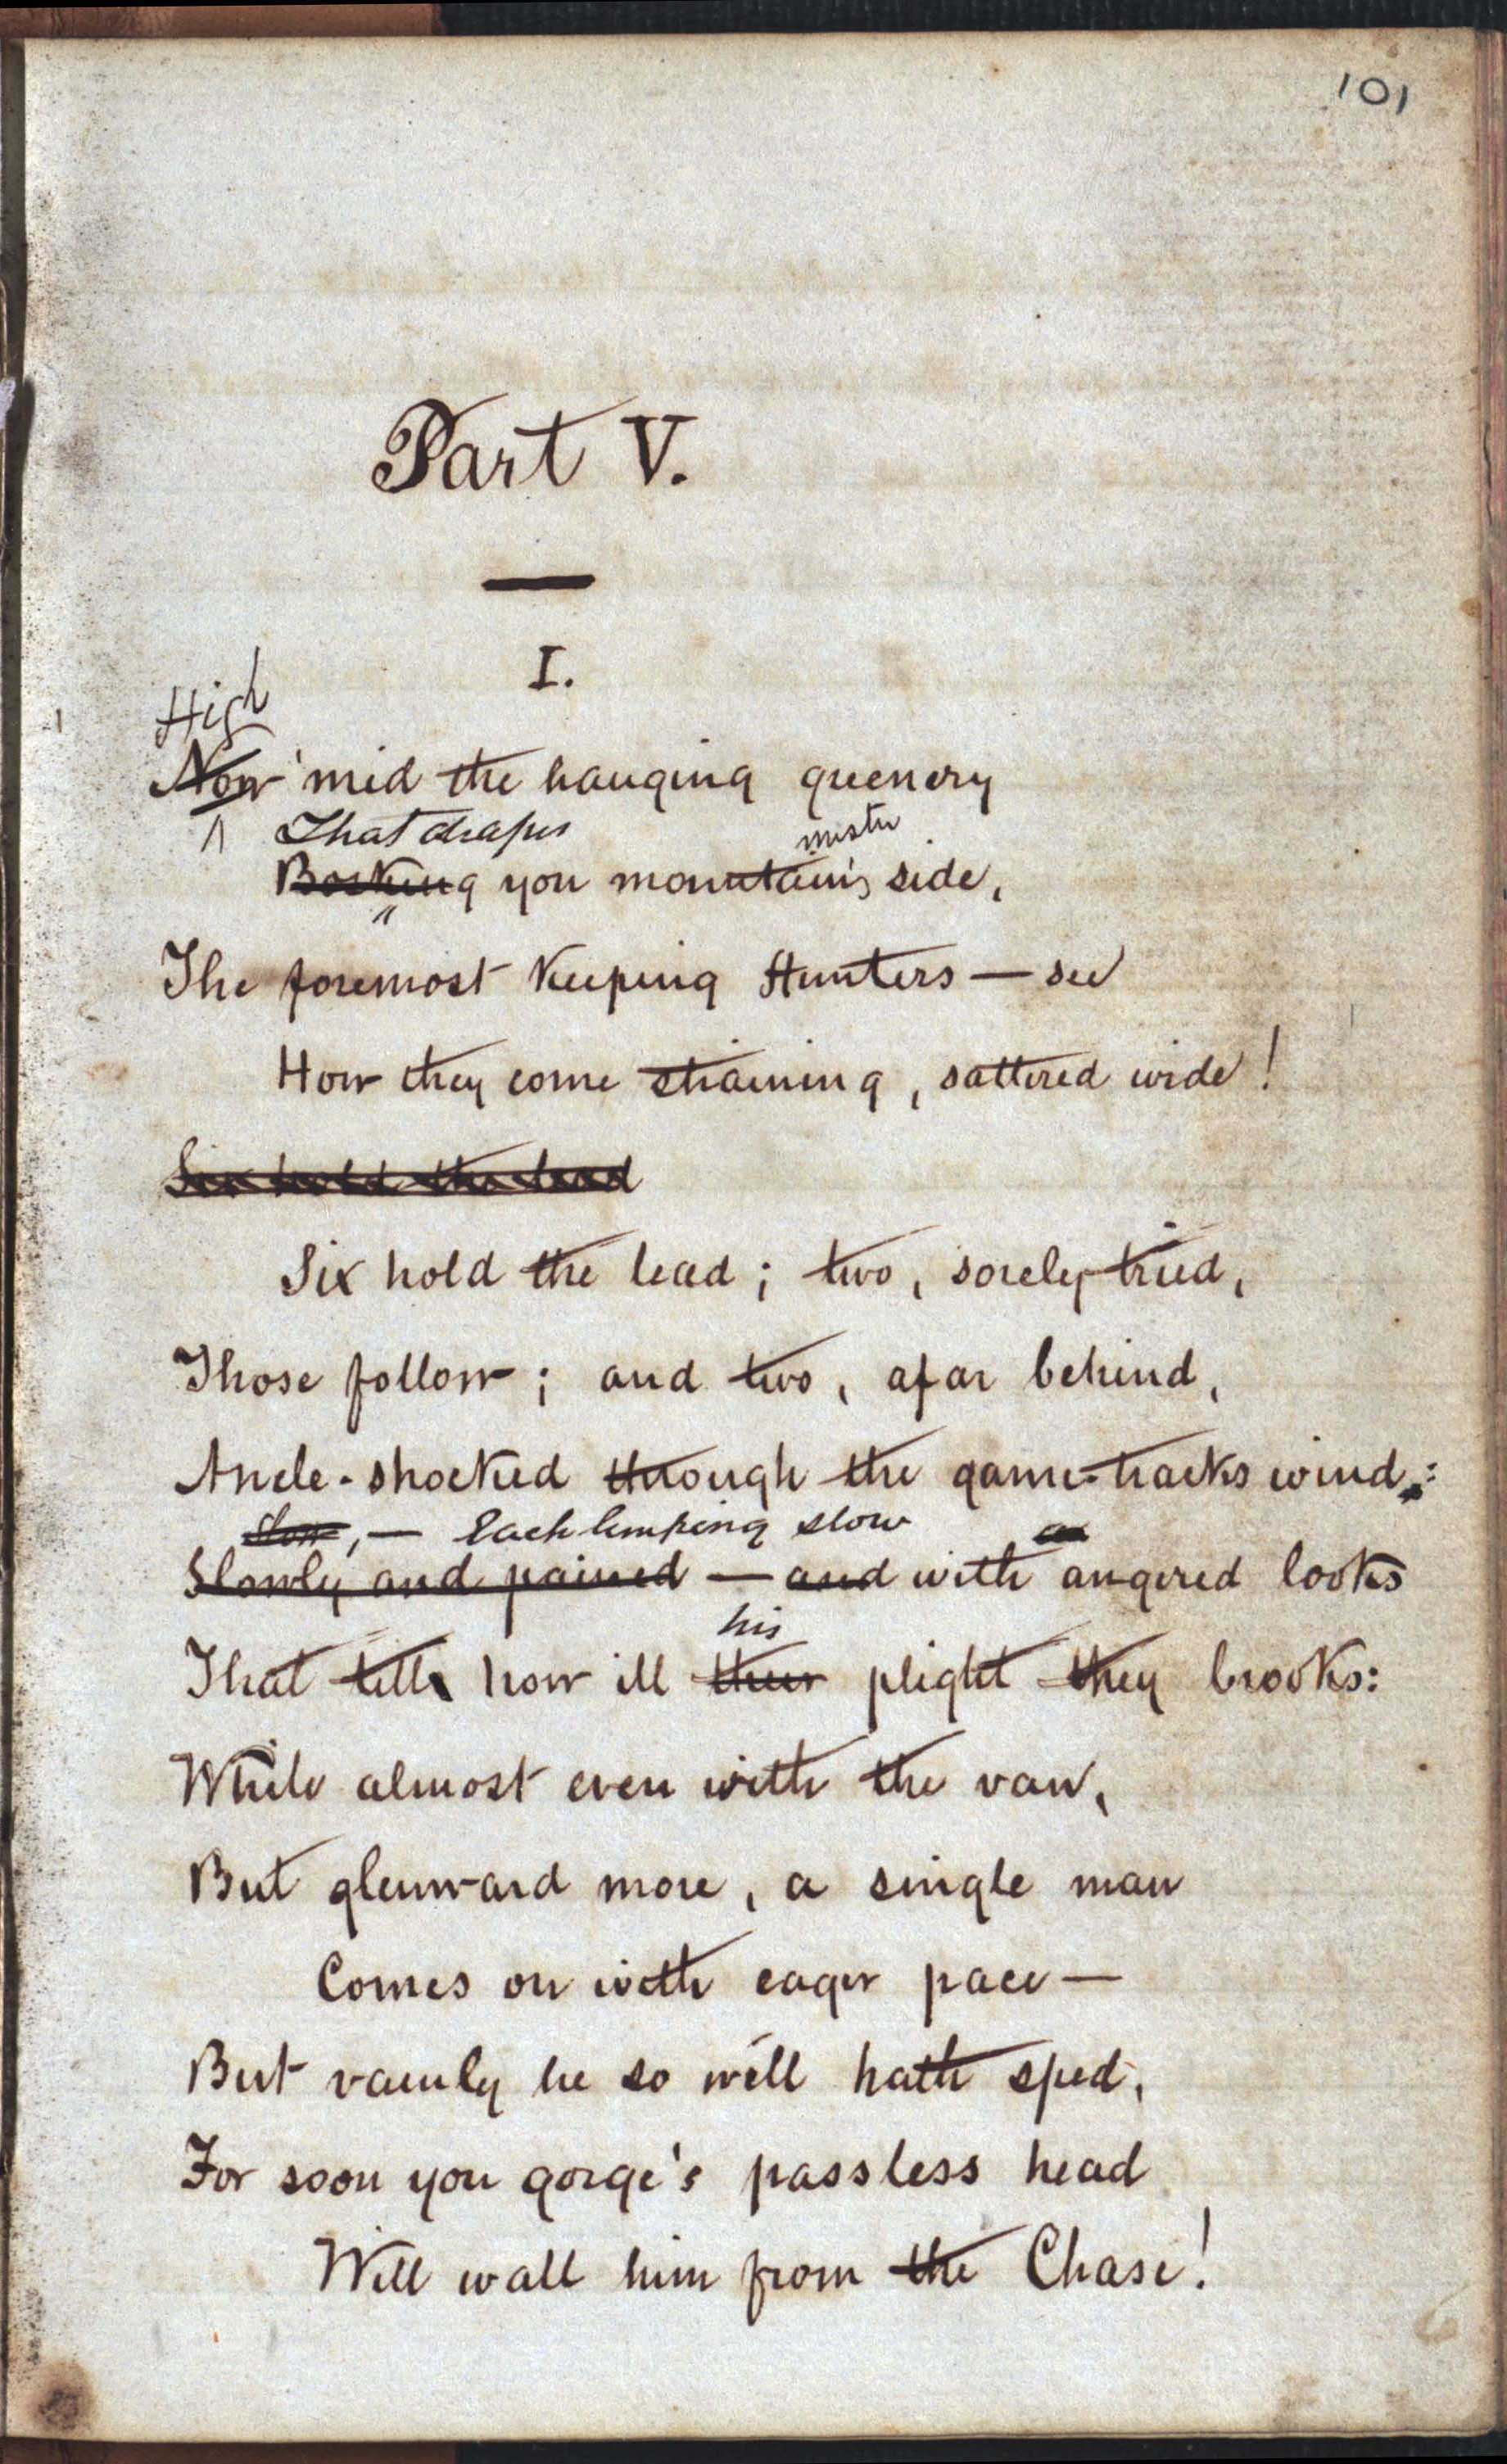 101
Part V.
I.
High
Now 'mid the hanging greenery
That drapes misty
Bosking yon mountain's side,
The foremost keeping Hunters — see
How they come straining, sattered wide!
Six hold the lead
Six hold the lead; two, sorely tried,
Those follow; and two, afar behind,
Ancle-shocked through the game-tracks wind:
Slow, — Each limping slow
Slowly and pained — and with angered looks
his
That tells how ill their plight they brooks:
While almost even with the van,
But glenward more, a single man
Comes on with eager pace —
But vainly he so well hath sped,
For soon yon gorge's passless head
Will wall him from the Chase!